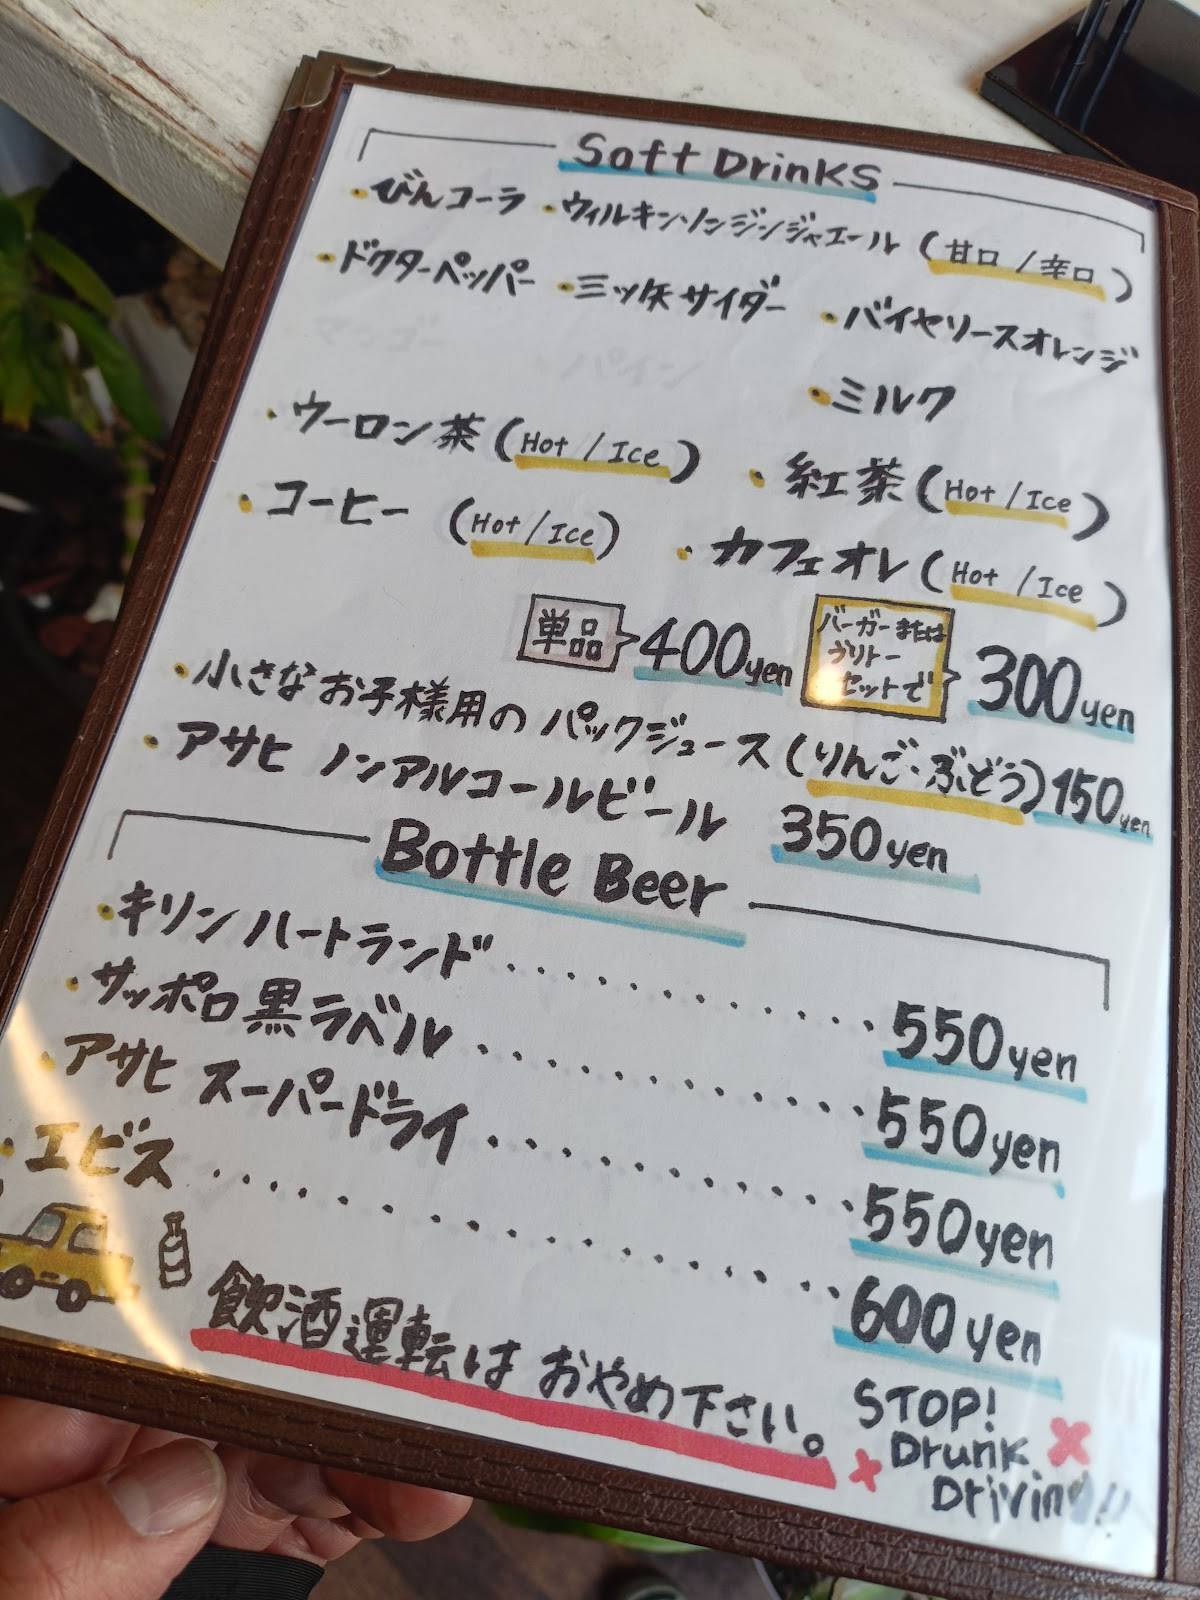 Soft Drinks
・びんコーラ ・ウィルキンソンジンジャエール (甘口 / 辛口)
・ドクターペッパー ・三ッ矢サイダー ・バイヤリースオレンジ
マンゴー パイン
・ミルク
・ウーロン茶 (Hot / Ice) ・紅茶 (Hot / Ice)
・コーヒー (Hot / Ice) ・カフェオレ (Hot / Ice)
単品 400yen
バーガーまたは
ブリトー
セットで
300yen
・小さなお子様用の パックジュース (りんご・ぶどう) 150yen
・アサヒ ノンアルコールビール 350yen
Bottle Beer
・キリン ハートランド............ 550yen
・サッポロ黒ラベル............ 550yen
・アサヒ スーパードライ............ 550yen
・エビス............ 600yen
飲酒運転は おやめ下さい。
STOP!
Drunk
Driving!!